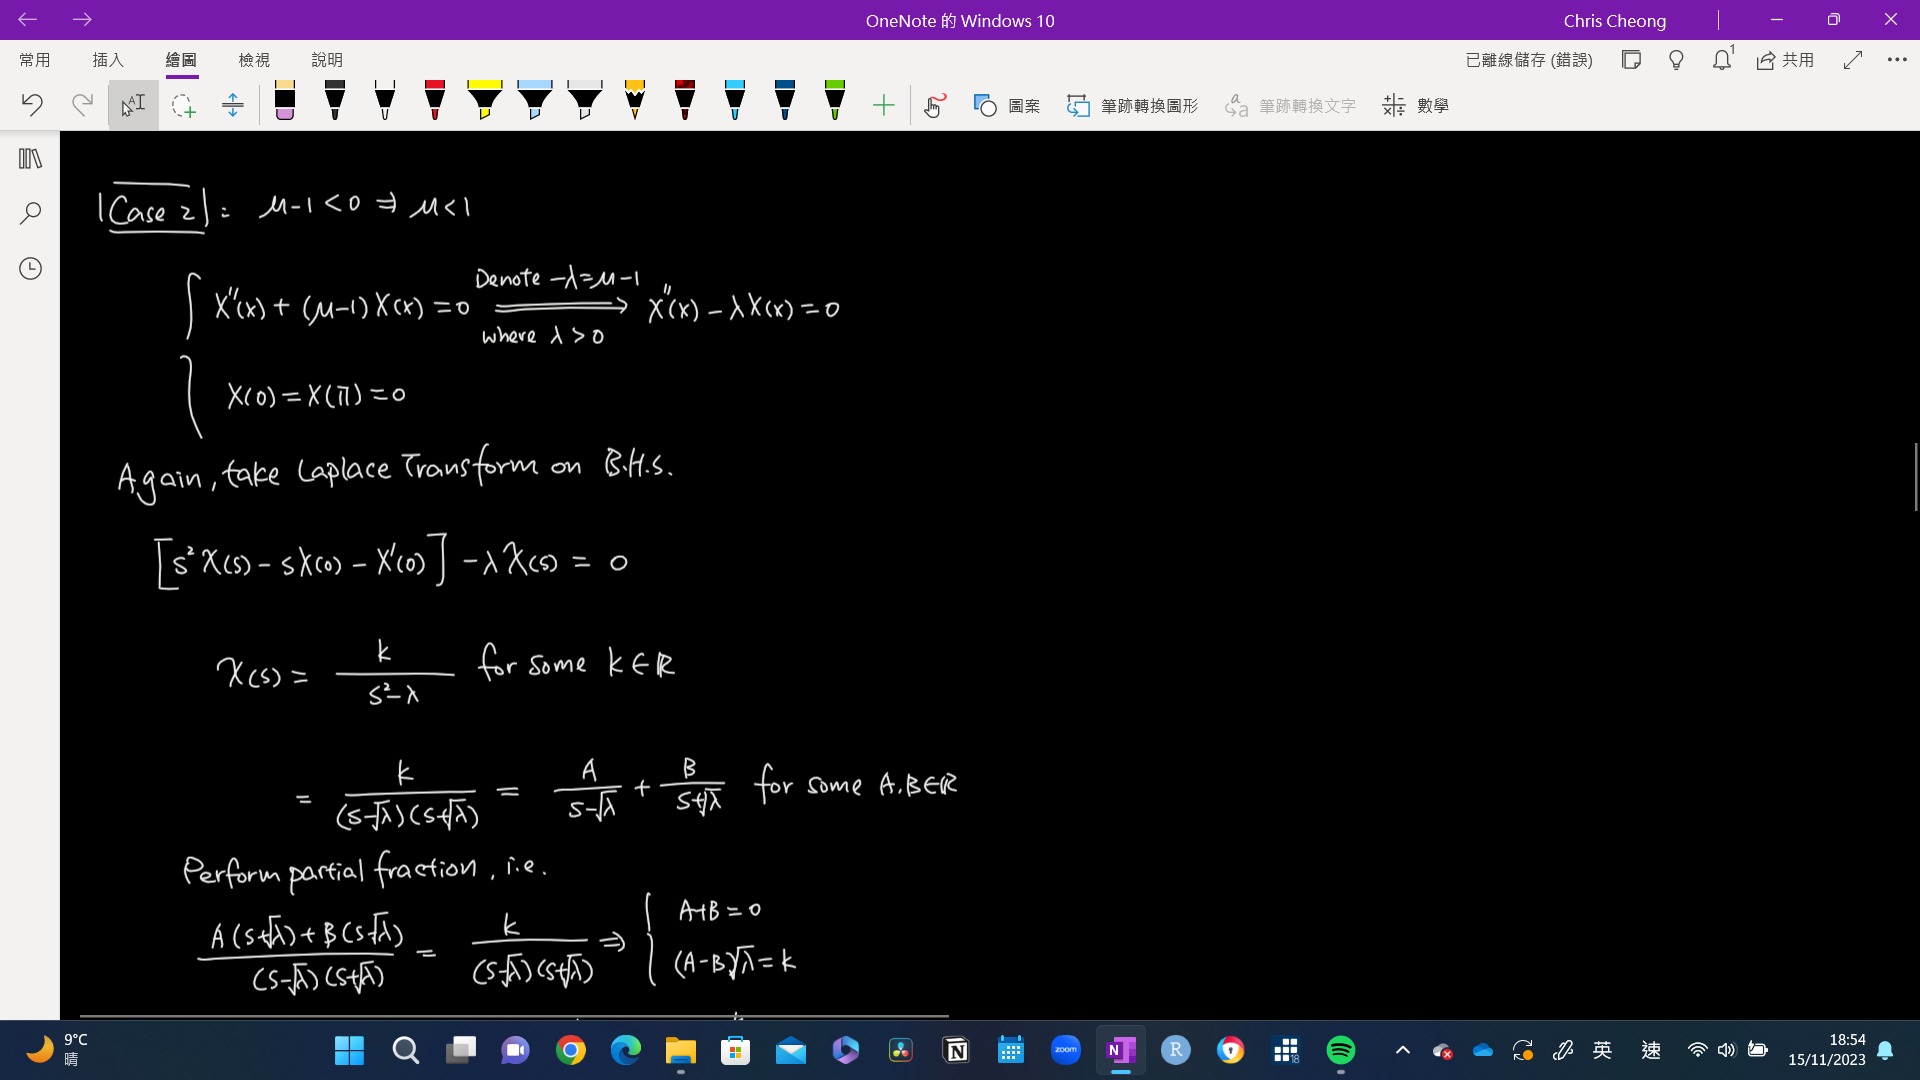 OneNote 的 Windows 10
Chris Cheong
常用 插入 繪圖 檢視 說明
已離線儲存 (錯誤) 1 共用
圖案 筆跡轉換圖形 筆跡轉換文字 數學
Case 2 : μ-1<0 ⇒ μ<1
Denote -λ=μ-1
X''(x) + (μ-1)X(x) = 0 ⟹ X''(x) - λX(x) = 0
where λ > 0
X(0) = X(π) = 0
Again, take Laplace Transform on B.H.S.
[s² X(s) - sX(0) - X'(0)] - λX(s) = 0
X(s) = k / (s²-λ) for some k∈ℝ
= k / ((s-√λ)(s+√λ)) = A / (s-√λ) + B / (s+√λ) for some A,B∈ℝ
Perform partial fraction, i.e.
(A(s+√λ)+B(s-√λ)) / ((s-√λ)(s+√λ)) = k / ((s-√λ)(s+√λ)) ⇒ { A+B=0
(A-B)√λ = k
9°C
晴
zoom
N
R
18
英
速
18:54
15/11/2023